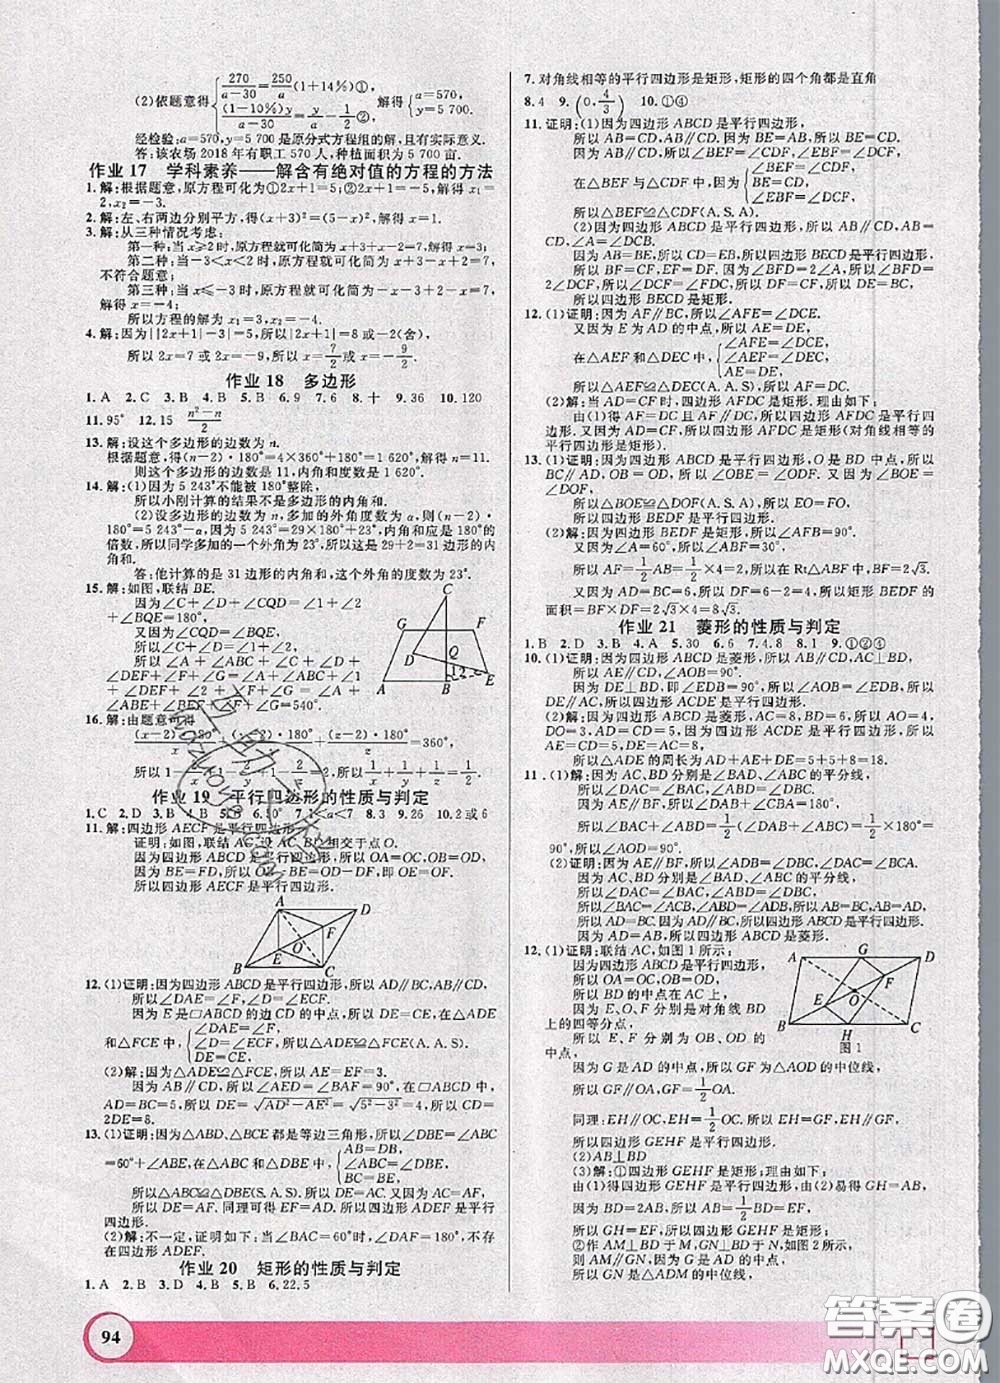 (2)依题意得{270/(a-30)=250/a(1+14%)① (1-10%)y/(a-30)=y/a-1/2② 解得{a=570, y=5 700.
经检验:a=570,y=5 700是原分式方程组的解,且有实际意义.
答:该农场2018年有职工570人,种植面积为5 700亩.
作业17 学科素养——解含有绝对值的方程的方法
1.解:根据题意,原方程可化为①2x+1=5②2x+1=-5,解得x₁=
2,x₂=-3.
2.解:左、右两边分别平方,得(x+3)²=(5-x)².解得x=1.
3.解:从三种情况考虑:
第一种:当x≥2时,原方程就可化简为x+3+x-2=7,解得x=3;
第二种:当-3<x<2时,原方程就可化简为x+3-x+2=7,
不符合题意;
第三种:当x≤-3时,原方程就可化简为-x-3-x+2=7,
解得x=-4;
所以方程的解为x₁=3,x₂=-4.
4.解:因为||2x+1|-3|=5,所以|2x+1|=8或-2(舍),
所以2x=7或2x=-9,所以x=7/2或x=-9/2.
作业18 多边形
1.A 2.C 3.B 4.B 5.B 6.9 7.6 8.十 9.36 10.120
11.95° 12.15 (n²-n)/2
13.解:设这个多边形的边数为n.
根据题意,得(n-2)·180°=360°×4+180°,解得n=11.
则这个多边形的边数是11,内角和度数是1 620°.
14.解:(1)因为5 243°不能被180°整除,
所以小刚计算的结果不是多边形的内角和.
(2)设多边形的边数为n,多加的外角度数为α,则(n-2)·
180°=5 243°-α,因为5 243°=29×180°+23°,内角和应是180°的
倍数,所以同学多加的一个外角为23°,所以这是29+2=31边形的内角
和.
答:他计算的是31边形的内角和,这个外角的度数为23°.
15.解:如图,联结BE.
因为∠C+∠D+∠CQD=∠1+∠2
+∠BQE=180°,
又因为∠CQD=∠BQE,
所以∠C+∠D=∠1+∠2,
所以∠A+∠ABC+∠C+∠D+
∠DEF+∠F+∠G=∠A+∠ABC+∠1+
∠2+∠DEF+∠F+∠G=∠A+
∠ABE+∠BEF+∠F+∠G=540°.
16.解:由题意可得
(x-2)·180°/x+(y-2)·180°/y+(z-2)·180°/z=360°,
所以1-2/x+1-2/y+1-2/z=2,所以1/x+1/y+1/z=1/2.
作业19 平行四边形的性质与判定
1.C 2.D 3.B 4.B 5.B 6.50° 7.1<a<7 8.3 9.26 10.2或6
11.解:四边形AECF是平行四边形.
证明:如图,联结AC,设AC,BD相交于点O.
因为四边形ABCD是平行四边形,所以OA=OC,OB=OD,
因为BE=DF,所以OB-BE=OD-DF,所以OE=OF,
所以四边形AECF是平行四边形.
A D F O E B C
12.(1)证明:因为四边形ABCD是平行四边形,所以AD∥BC,AB∥CD,
所以∠DAE=∠F,∠D=∠ECF.
因为E是▱ABCD的边CD的中点,所以DE=CE,在△ADE
和△FCE中,{∠DAE=∠F, ∠D=∠ECF, DE=CE, 所以△ADE≌△FCE(A.A.S).
(2)解:因为△ADE≌△FCE,所以AE=EF=3.
因为AB∥CD,所以∠AED=∠BAF=90°,在▱ABCD中,
AD=BC=5,所以DE=√(AD²-AE²)=√(5²-3²)=4,所以CD=
2DE=8.
13.(1)证明:因为△ABD、△BCE都是等边三角形,所以∠DBE=∠ABC
=60°+∠ABE,在△ABC和△DBE中,{AB=DB, ∠ABC=∠DBE, BC=BE,
所以△ABC≌△DBE(S.A.S).所以DE=AC.又因为AC=AF,
所以DE=AF.同理可得EF=AD.所以四边形ADEF是平行
四边形.
(2)解:不一定,证明如下:当∠BAC=60°时,∠DAF=180°,不存
在四边形ADEF.
作业20 矩形的性质与判定
1.A 2.B 3.D 4.D 5.B 6.22.5
7.对角线相等的平行四边形是矩形,矩形的四个角都是直角
8.4 9.(0,4/3) 10.①④
11.证明:(1)因为四边形ABCD是平行四边形,
所以AB=CD,AB∥CD.因为BE=AB,所以BE=CD.
在△BEF与△CDF中,
所以△BEF≌△CDF(A.S.A).
(2)因为四边形ABCD是平行四边形,所以AB∥CD,AB=
CD,∠A=∠DCB.
因为AB=BE,所以CD=EB,所以四边形BECD是平行四边形,
所以BF=CF,EF=DF.因为∠BFD=2∠A,所以∠BFD=
2∠DCF,所以∠DCF=∠FDC,所以DF=CF,所以DE=
BC,所以四边形BECD是矩形.
12.(1)证明:因为AF∥BC,所以∠AFE=∠DCE,
又因为E为AD的中点,所以AE=DE,
在△AEF和△DEC中,{∠AFE=∠DCE, ∠AEF=∠DEC, AE=DE,
(2)解:当AD=CF时,四边形AFDC是矩形.理由如下:
由(1)得AF=DC且AF∥DC,所以四边形AFDC是平行四边形.
又因为AD=CF,所以四边形AFDC是矩形(对角线相等的
平行四边形是矩形).
13.(1)证明:因为四边形ABCD是平行四边形,O是BD中点,所以
BC∥AD,OB=OD,所以∠OBE=∠ODF.又因为∠BOE=
∠DOF,所以△BOE≌△DOF(A.S.A),所以EO=FO,
所以四边形BEDF是平行四边形.
(2)解:因为四边形BEDF是矩形,所以∠BFD=∠AFB=90°.
又因为∠A=60°,所以∠ABF=30°.
所以AF=1/2AB=1/2×4=2,所以在Rt△ABF中,BF=2√3.
又因为AD=BC=6,所以DF=6-2=4,所以矩形BEDF的
面积=BF×DF=2√3×4=8√3.
作业21 菱形的性质与判定
1.B 2.D 3.B 4.A 5.30 6.6 7.4.8 8.1 9.①②④
10.(1)证明:因为四边形ABCD是菱形,所以AC⊥BD,
所以∠AOB=90°.
因为DE⊥BD,即∠EDB=90°,所以∠AOB=∠EDB,
所以DE∥AC,所以四边形ACDE是平行四边形.
(2)解:因为四边形ABCD是菱形,AC=8,BD=6,所以AO=4,
DO=3,AD=CD=5,因为四边形ACDE是平行四边形,所
以AE=CD=5,DE=AC=8,
所以△ADE的周长为AD+AE+DE=5+5+8=18.
11.(1)解:因为AC,BD分别是∠BAD、∠ABC的平分线,
因为AE∥BF,所以∠DAB+∠CBA=180°,
所以∠BAC+∠ABD=1/2(∠DAB+∠ABC)=1/2×180°=
90°,所以∠AOD=90°.
(2)证明:因为AE∥BF,所以∠ADB=∠DBC,∠DAC=∠BCA.
因为AC,BD分别是∠BAD、∠ABC的平分线,
所以∠DAC=∠BAC,∠ABD=∠DBC.
所以∠BAC=∠ACB,∠ABD=∠ADB,所以AB=BC,AB=AD,
所以AD=BC.因为AD∥BC,所以四边形ABCD是平行四边形.
因为AD=AB,所以四边形ABCD是菱形.
12.(1)证明:联结AC,如图1所示:
因为四边形ABCD是平行四边形,
所以OA=OC,OB=OD,
所以BD的中点在AC上,
因为E、O、F分别是对角线BD
上的四等分点,
所以E、F分别为OB、OD的
中点,
因为G是AD的中点,所以GF为△AOD的中位线,
所以GF∥OA,GF=1/2OA.
同理:EH∥OC,EH=1/2OC.所以EH=GF,EH∥GF,
所以四边形GEHF是平行四边形.
(2)AB⊥BD
(3)解:①四边形GEHF是矩形;理由如下:
由(1)得四边形GEHF是平行四边形,由(2)易得GH=AB,
因为BD=2AB,所以AB=1/2BD=EF,
所以GH=EF,所以四边形GEHF是矩形;
②作AM⊥BD于M,GN⊥BD于N,如图2所示,
则AM∥GN,因为G是AD的中点,
所以GN是△ADM的中位线,
图1
94
答案圈
MXQE.COM